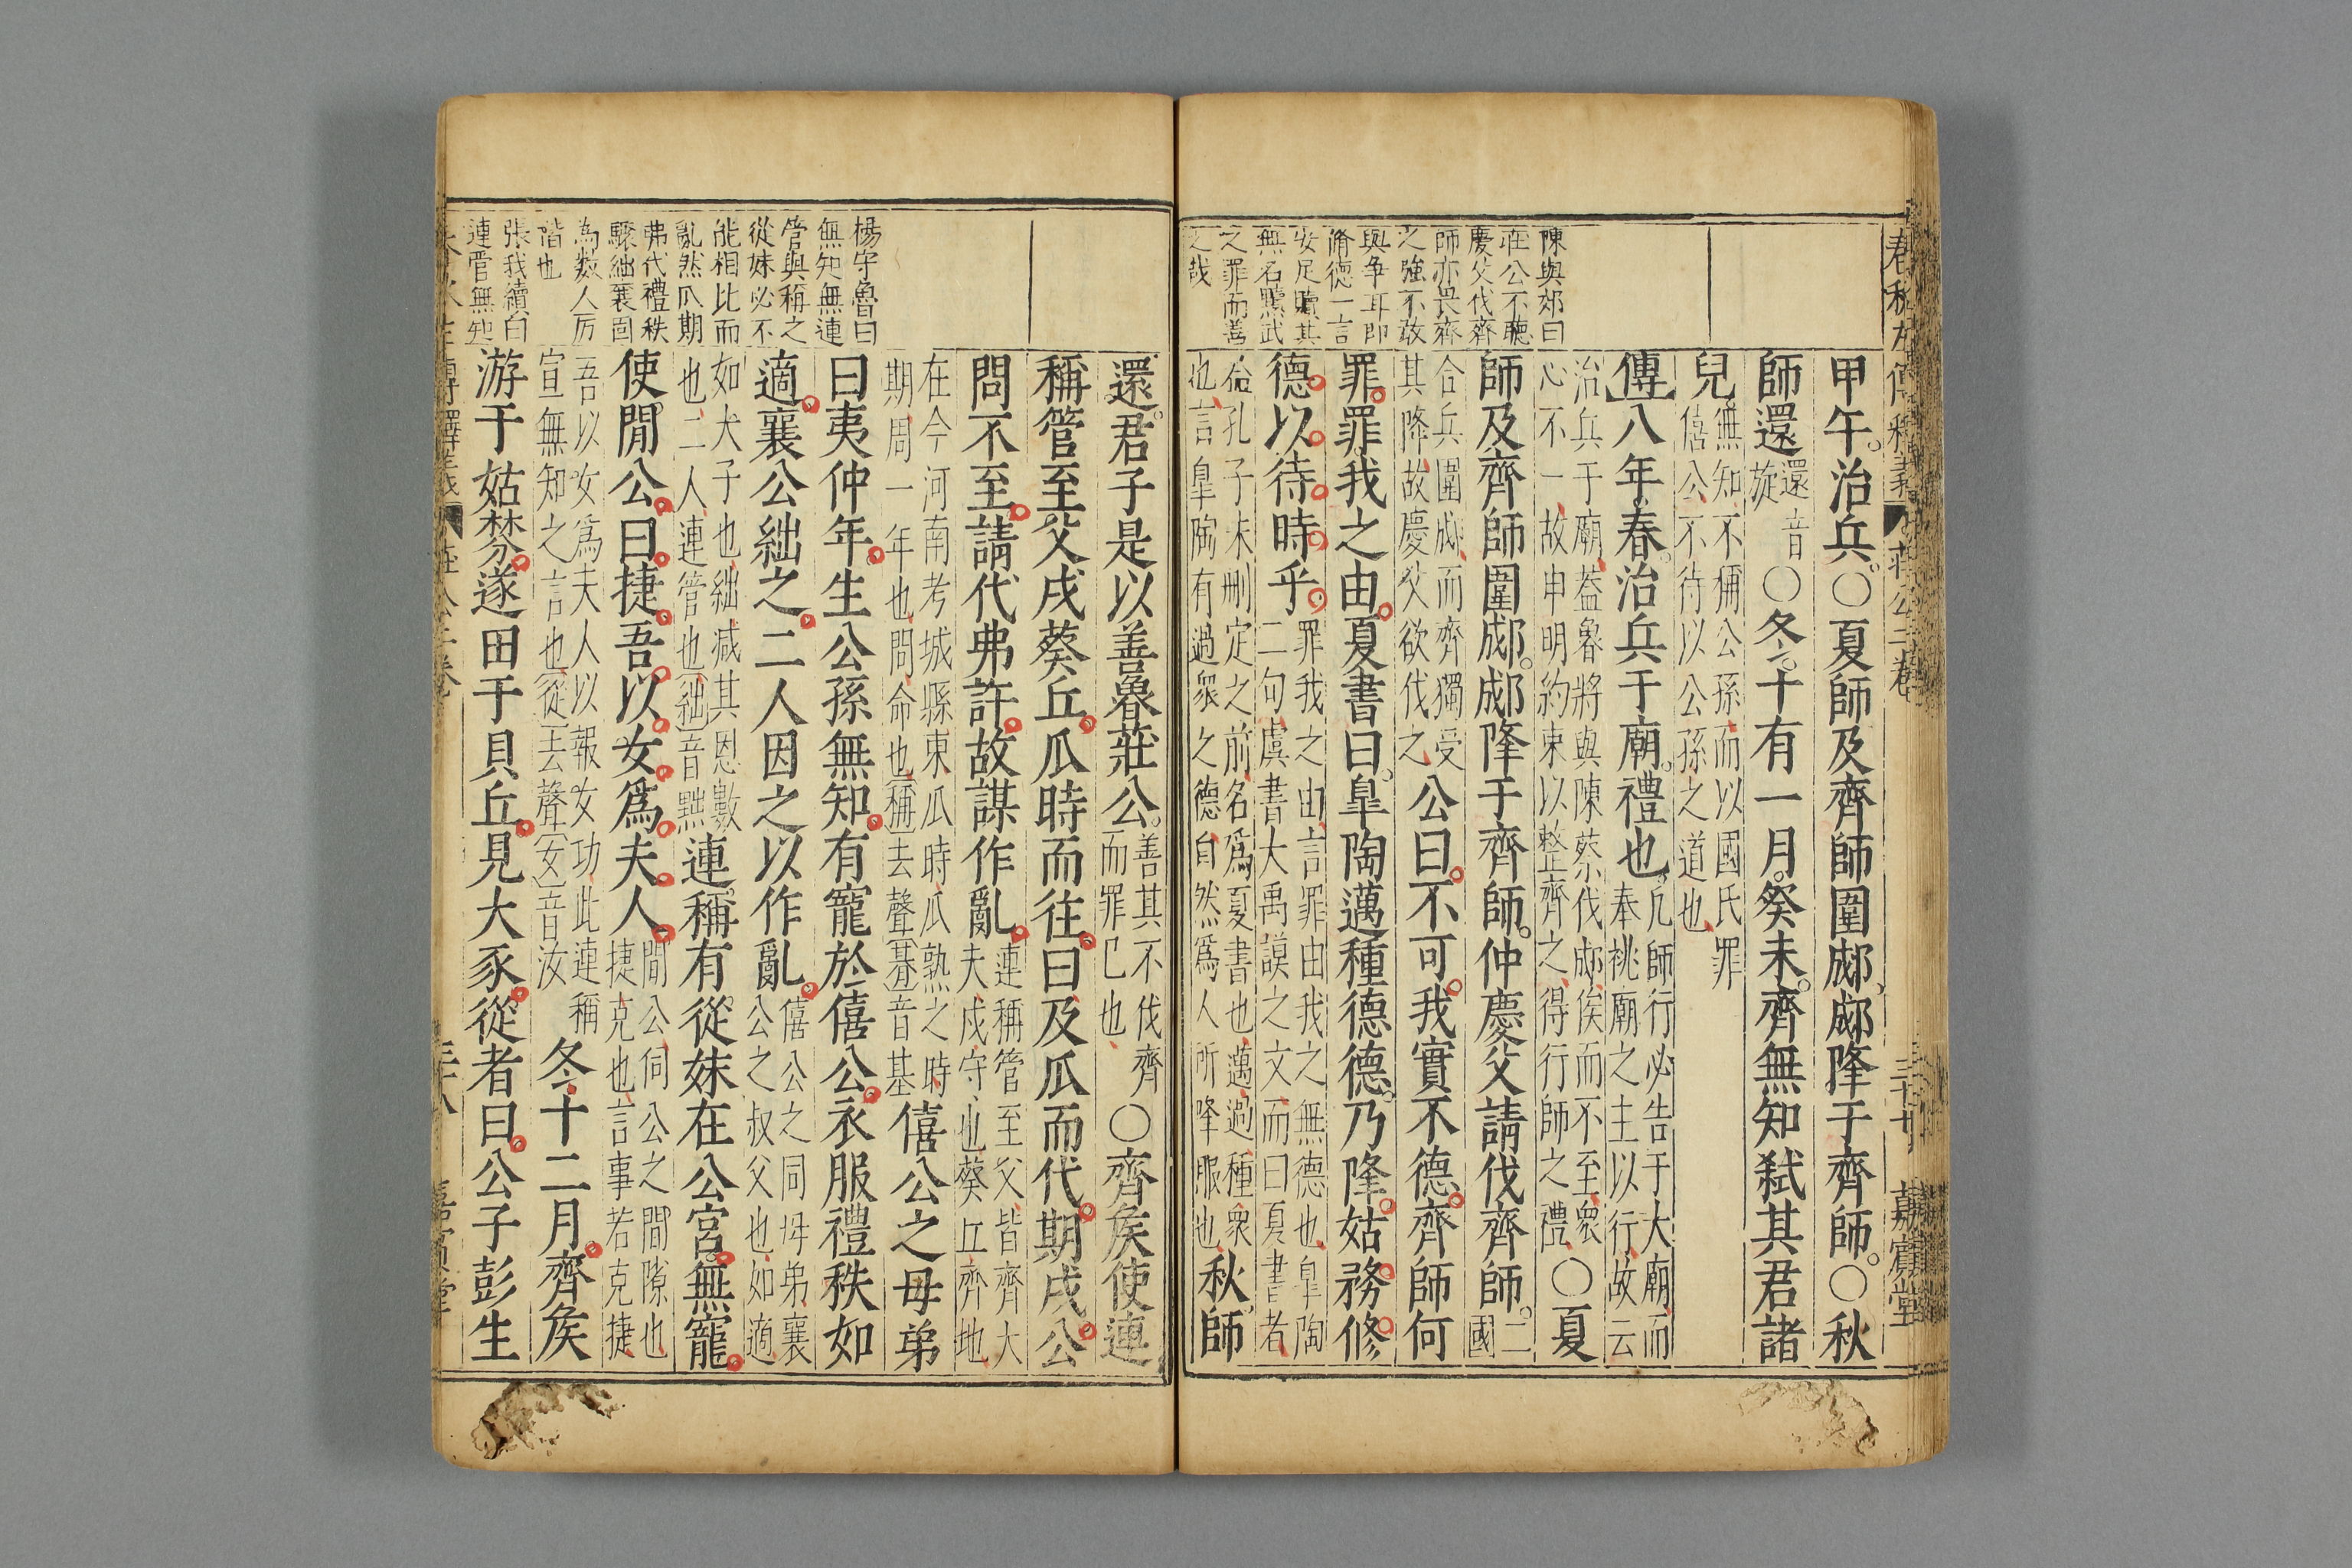 春秋左傳釋義 莊公二卷 三十七 嘉賓堂
陳與郊曰
莊公不聽
慶父伐齊
師亦畏齊
之強不敢
與爭耳即
脩德一言
安足贖其
無名黷武
之罪而善
之哉
甲午。治兵。○夏師及齊師圍郕、郕降于齊師。○秋
師還還音旋○冬。十有一月。癸未。齊無知弒其君諸
兒無知不稱公孫而以國氏罪僖公不待以公孫之道也
傳八年。春。治兵于廟。禮也。凡師行必告于大廟而奉祧廟之主以行故云
治兵于廟、葢魯將與陳蔡伐郕俟而不至、衆心不一、故申明約束以整齊之、得行師之禮、○夏
師及齊師圍郕。郕降于齊師。仲慶父請伐齊師。二國
合兵圍郕、而齊獨受其降、故慶父欲伐之、公曰。不可。我實不德。齊師何
罪。罪我之由。夏書曰。皐陶邁種德。德乃降。姑務修
德。以待時乎。罪我之由、言罪由我之無德也、皐陶二句、虞書大禹謨之文、而曰夏書者、
葢孔子未刪定之前、名爲夏書也、邁、過、種、衆也、言皐陶有過衆之德、自然爲人所降服也、秋。師
楊守魯曰
無知無連
管與稱之
從妹必不
能相比而
亂然瓜期
弗代禮秩
驟絀襄固
為數人厉
階也
張我續曰
連管無知
還。君子是以善魯莊公。善其不伐齊而罪已也、○齊矦使連
稱管至父戍葵丘。瓜時而往。曰及瓜而代。期戍。公
問不至。請代弗許。故謀作亂。連稱管至父、皆齊大夫、戍、守也、葵丘、齊地、
在今河南考城縣東、瓜時、瓜熟之時、期、周一年也、問、命也、稱去聲朞音基僖公之母弟
曰夷仲年。生公孫無知。有寵於僖公。衣服禮秩如
適。襄公絀之。二人因之以作亂。僖公之同母弟、襄公之叔父也、如適、
如犬子也、絀、減其恩數也、二人、連管也、絀音黜連稱有從妹在公宮。無寵。
使閒公。曰。捷。吾以女爲夫人。間公、伺公之間隙也、捷、克也、言事若克捷、
吾以女爲夫人、以報女功、此連稱宣無知之言也從去聲女音汝冬。十二月。齊矦
游于姑棼。遂田于貝丘。見大豕。從者曰。公子彭生